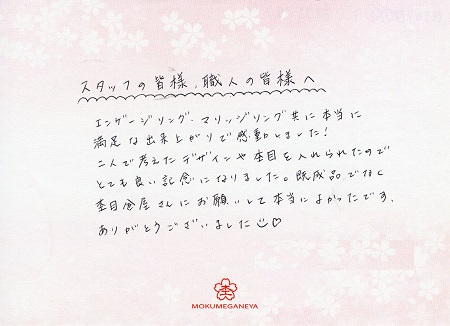 スタッフの皆様、職人の皆様へ
エンゲージリング、マリッジリング共に本当に
満足な出来上がりで感動しました!
二人で考えたデザインや杢目を入れられたので
とても良い記念になりました。既成品でなく
杢目金屋さんにお願いして本当によかったです。
ありがとうございました
MOKUMEGANEYA